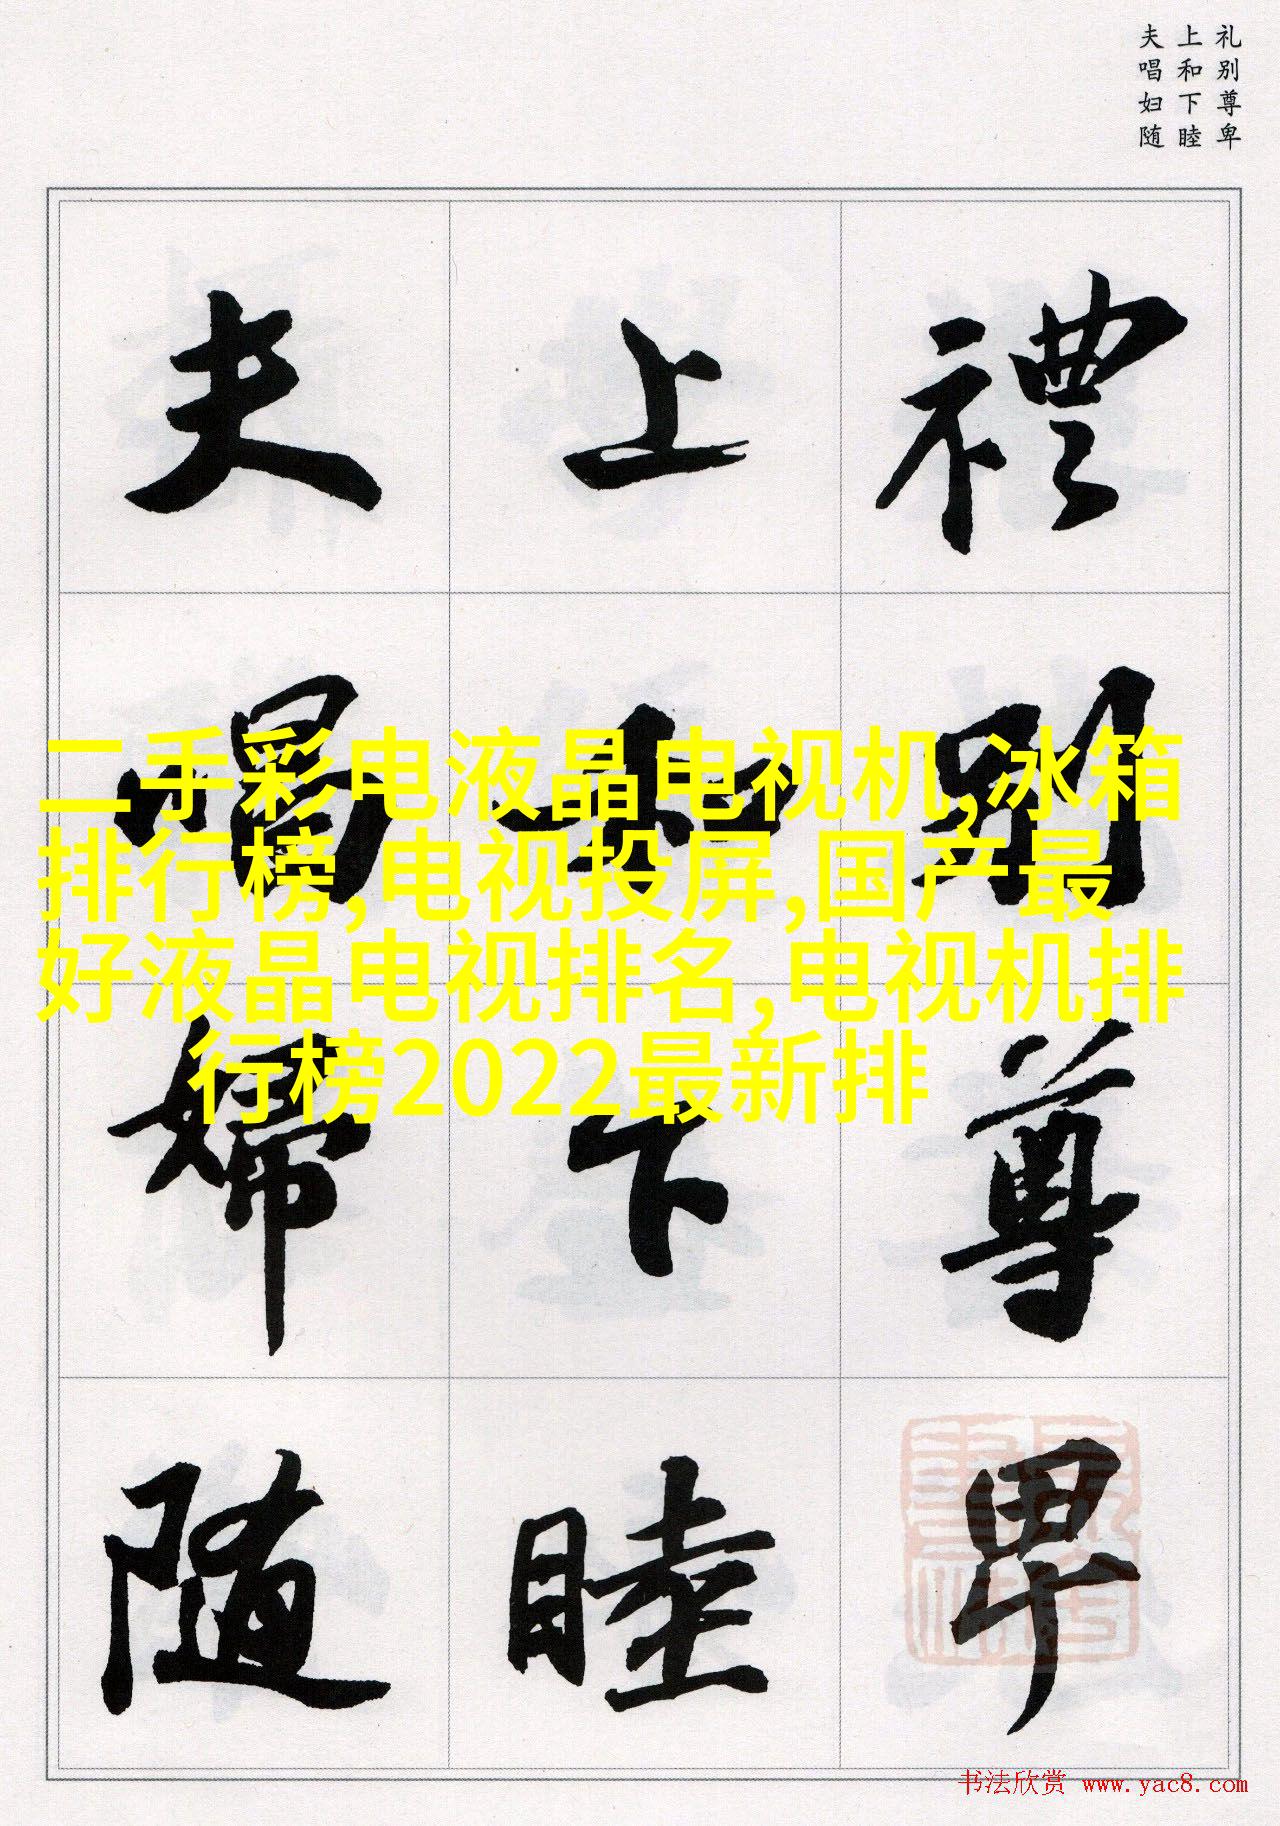 礼别尊卑
上和下睦
夫唱妇随
禮別尊卑
上和下睦
夫唱婦随
二手彩电液晶电视机,冰箱
排行榜,电视投屏,国产最
好液晶电视排名,电视机排
行榜2022最新排
书法欣赏 www.yac8.com